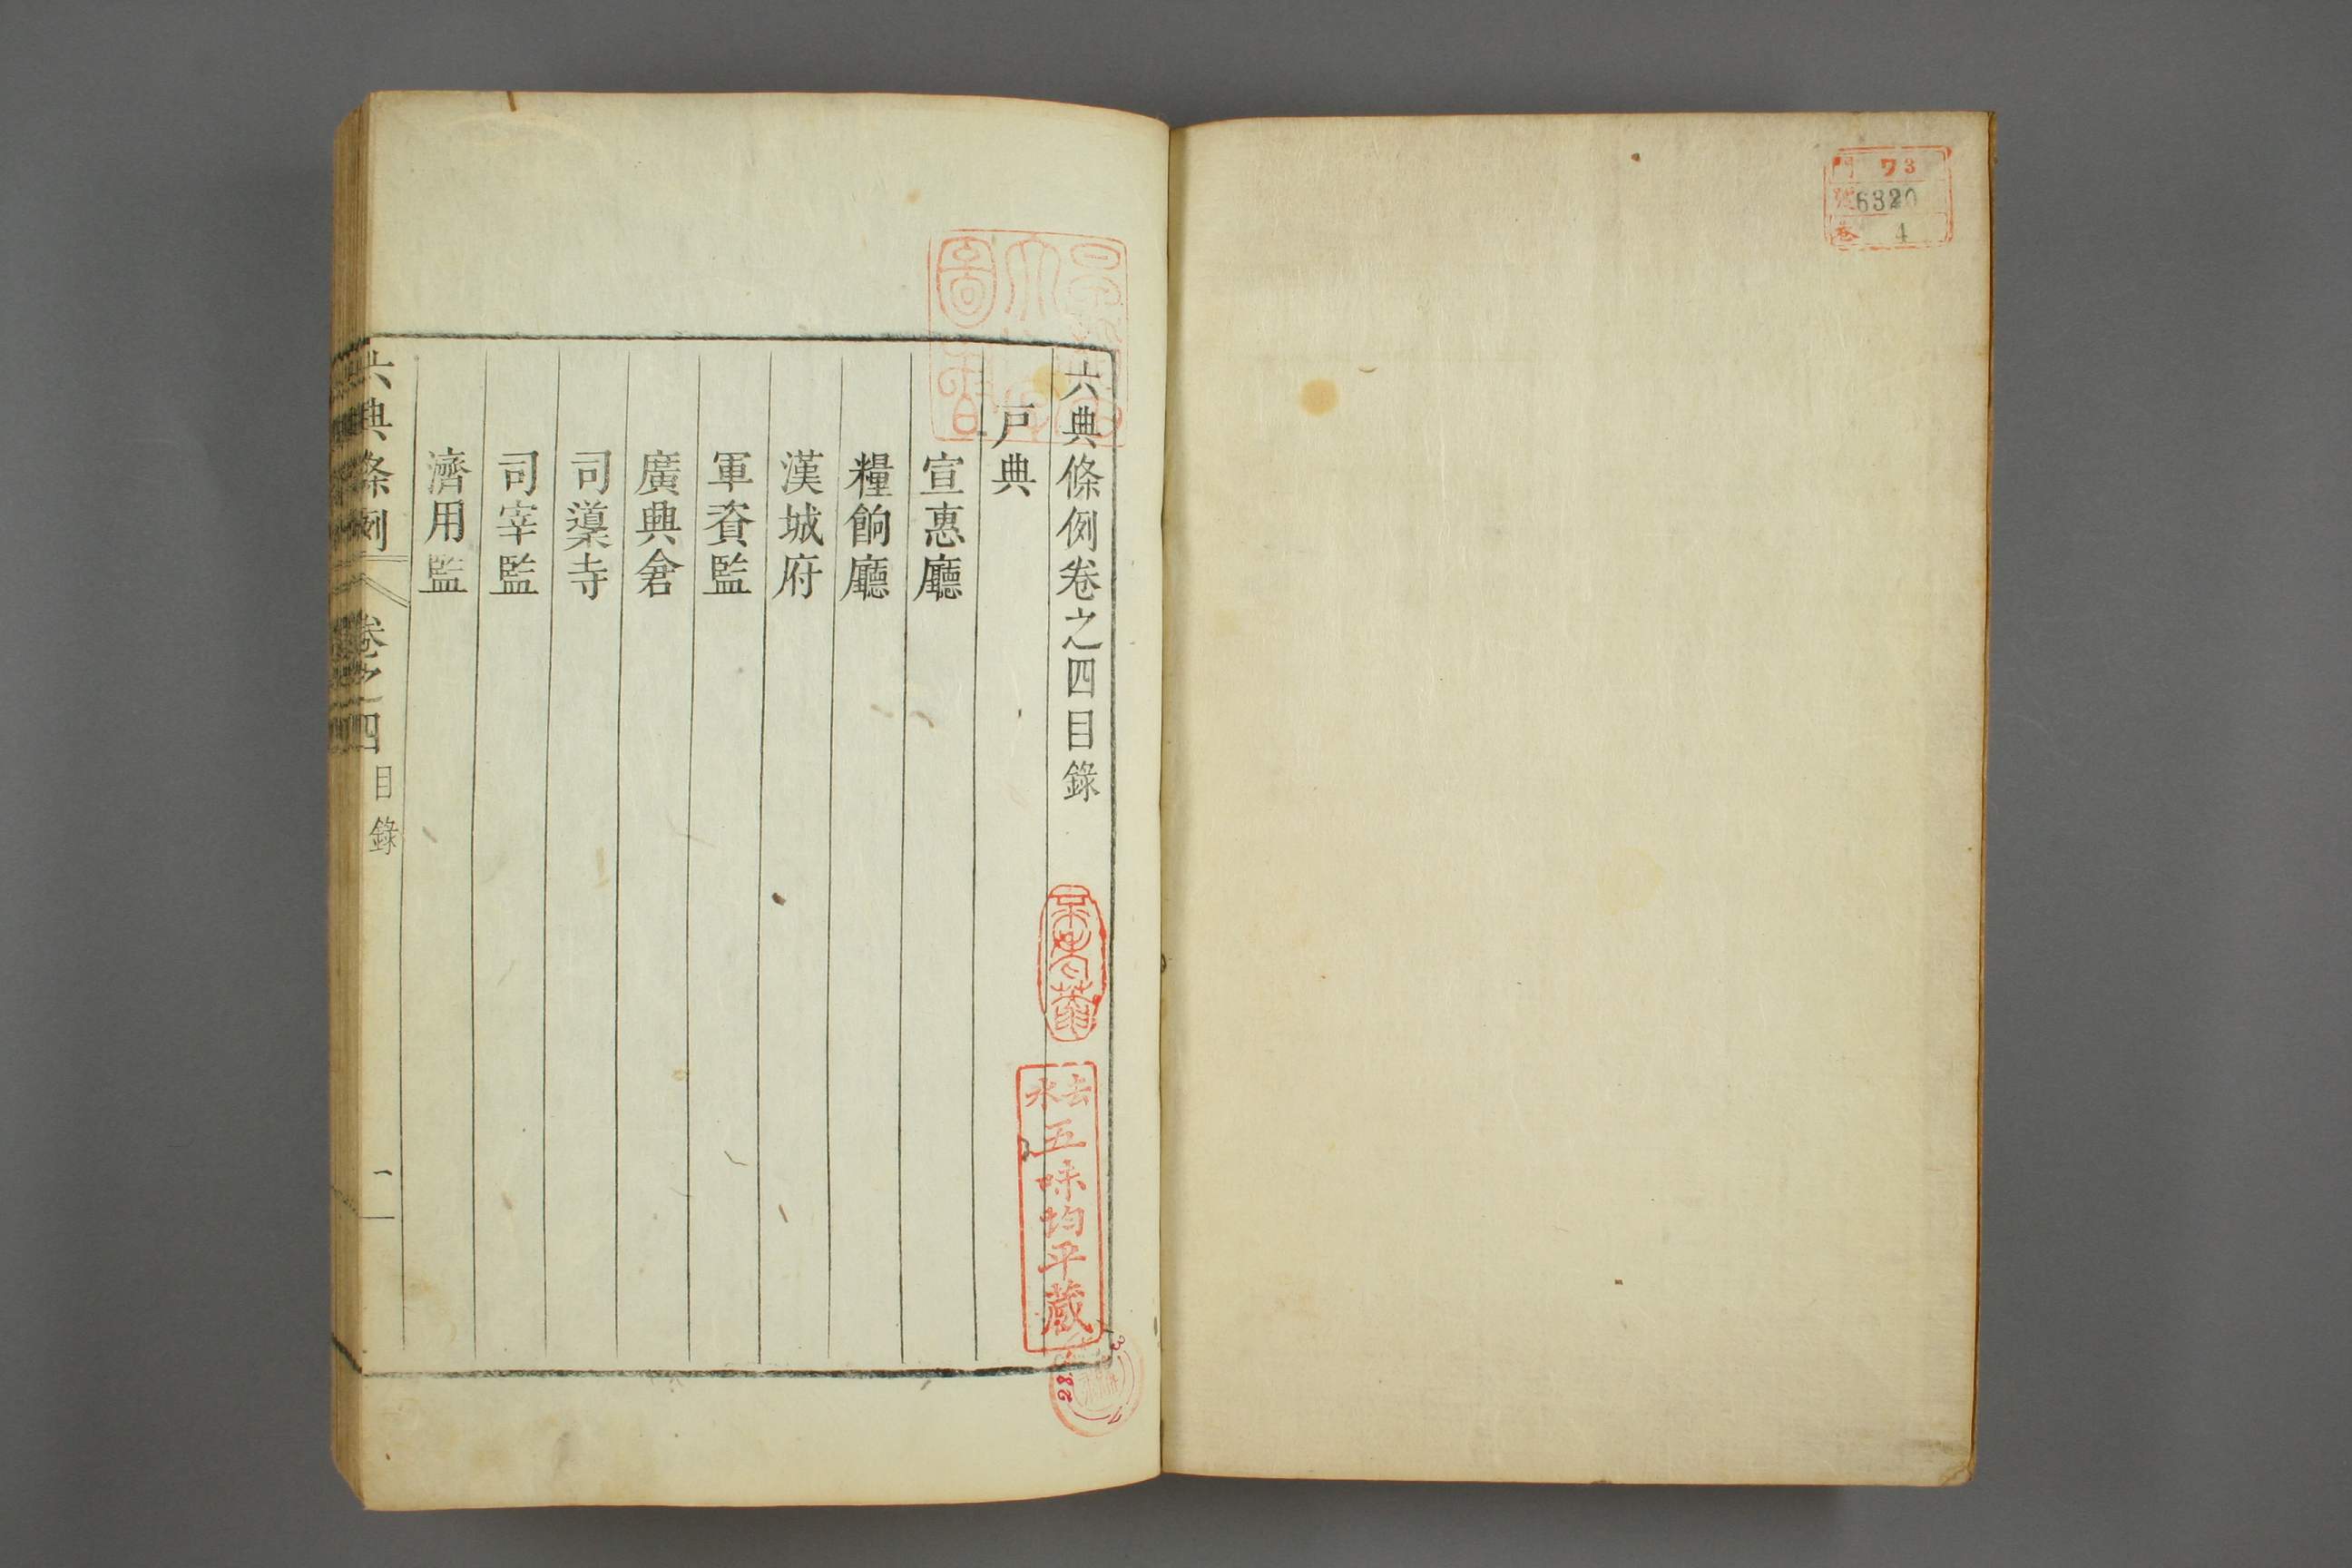 門 73
號 6320
巻 4
六典條例卷之四目錄
戶典
宣惠廳
糧餉廳
漢城府
軍資監
廣興倉
司䆃寺
司宰監
濟用監
六典條例 卷之四 目錄 一
五味均平蔵